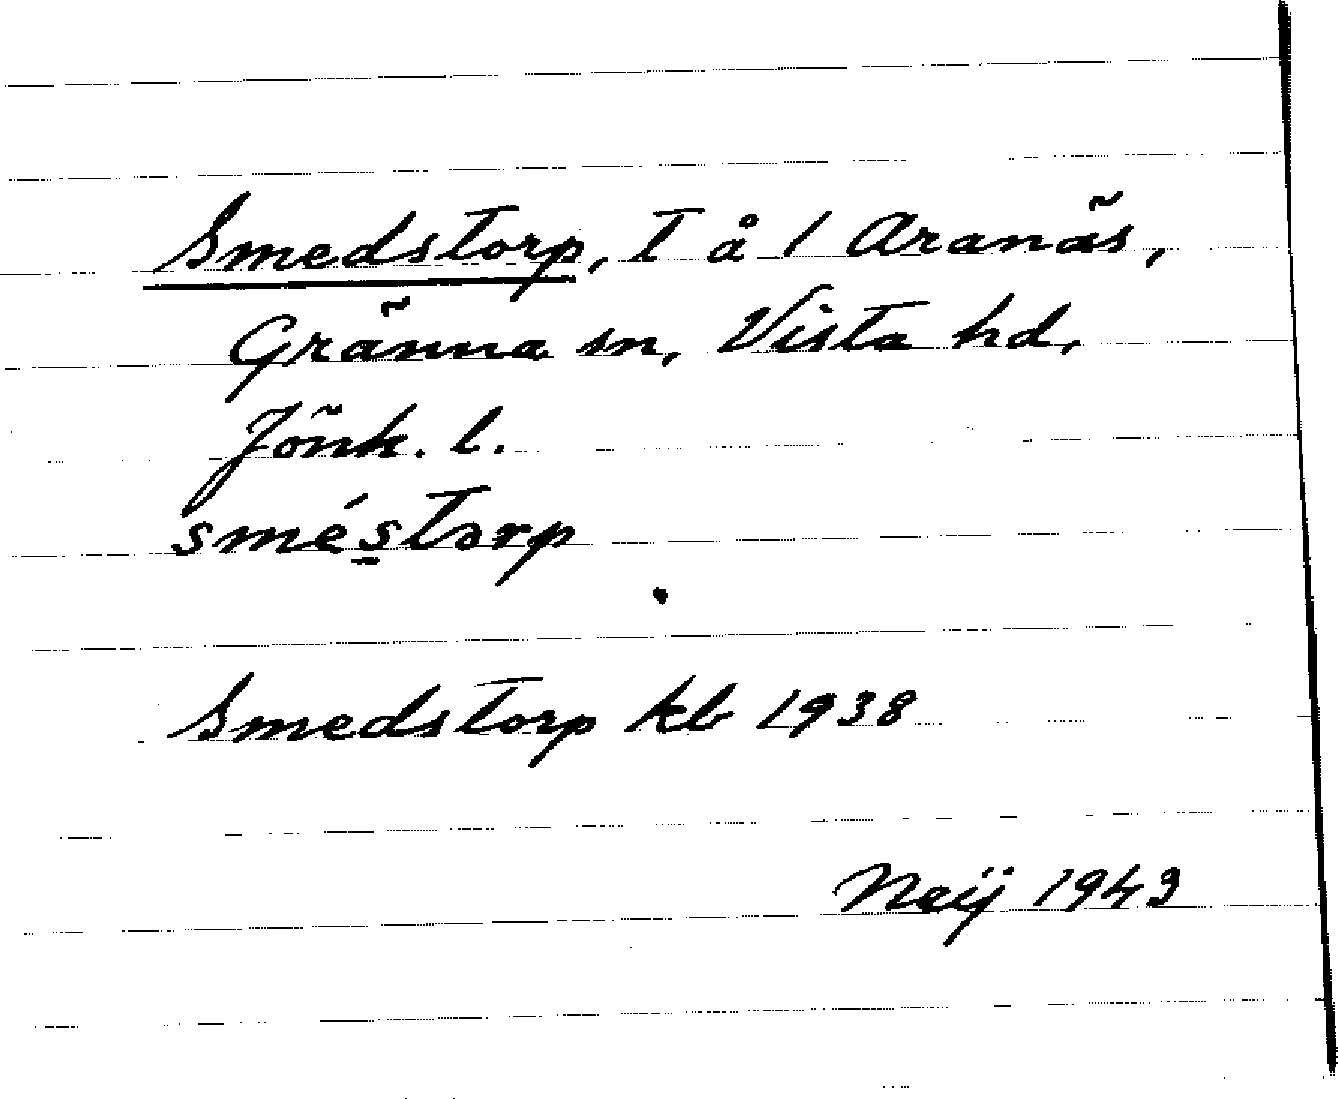 Smedstorp, T å 1 Aranäs,
Gränna sn, Vista hd,
Jönk. l.
smés̲torp
Smedstorp kb 1938
Neij 1943